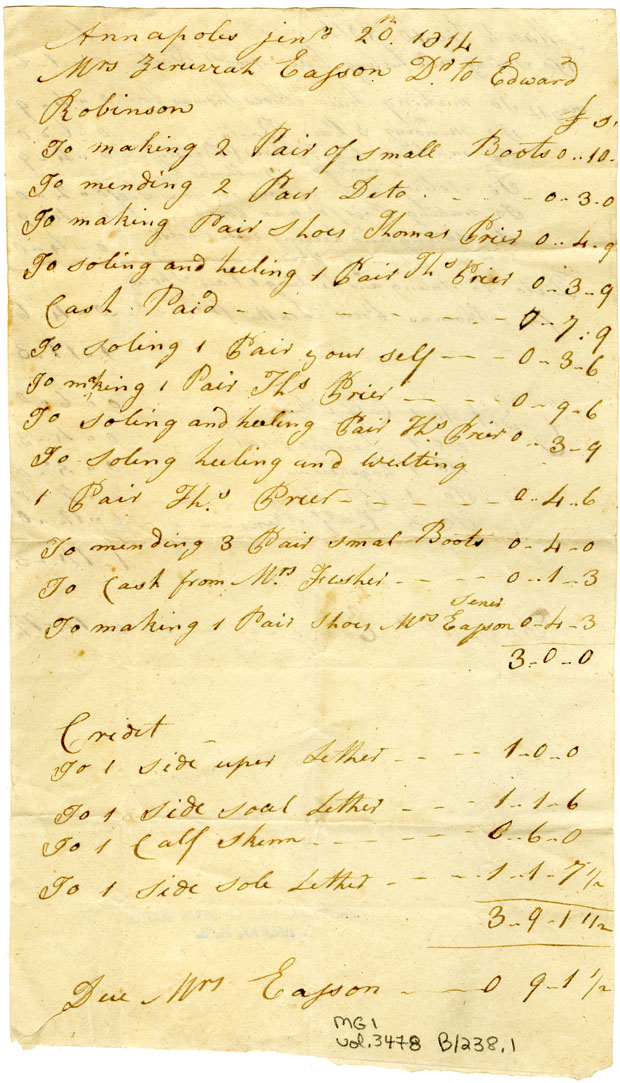 Annapoles jenr 20th 1814
Mrs Zeruviah Easson Dr to Edward
Robinson £ s.
To making 2 Pair of small Boots 0..10.
To mending 2 Pair Deto - - - - 0-3-0
To making Pair shoes Thomas Prier 0-4-9
To soling and heeling 1 Pair Ths Prier 0-3-9
Cash Paid - - - - - - - - 0-7-9
To soling 1 Pair your self - - - 0-3-6
To making 1 Pair Ths Prier - - 0-9-6
To soling and heeling Pair Ths. Prier 0-3-9
To soling heeling and welting
1 Pair Th.s Prier - - - - - 0-4-6
To mending 3 Pair smal Boots 0-4-0
To Cash from Mrs Fusher - - - 0-1-3
To making 1 Pair shoes Mrs Easson Sener 0-4-3
3-0-0
Credit
To 1 side uper Lether - - - 1-0-0
To 1 side soal Lether - - - 1-1-6
To 1 Calf skinn - - - - - - 0-6-0
To 1 side sole Lether - - - 1-1-7 1/2
3-9-1 1/2
Due Mrs Easson - - - 0 9-1 1/2
MG1
vol.3478 B/238.1